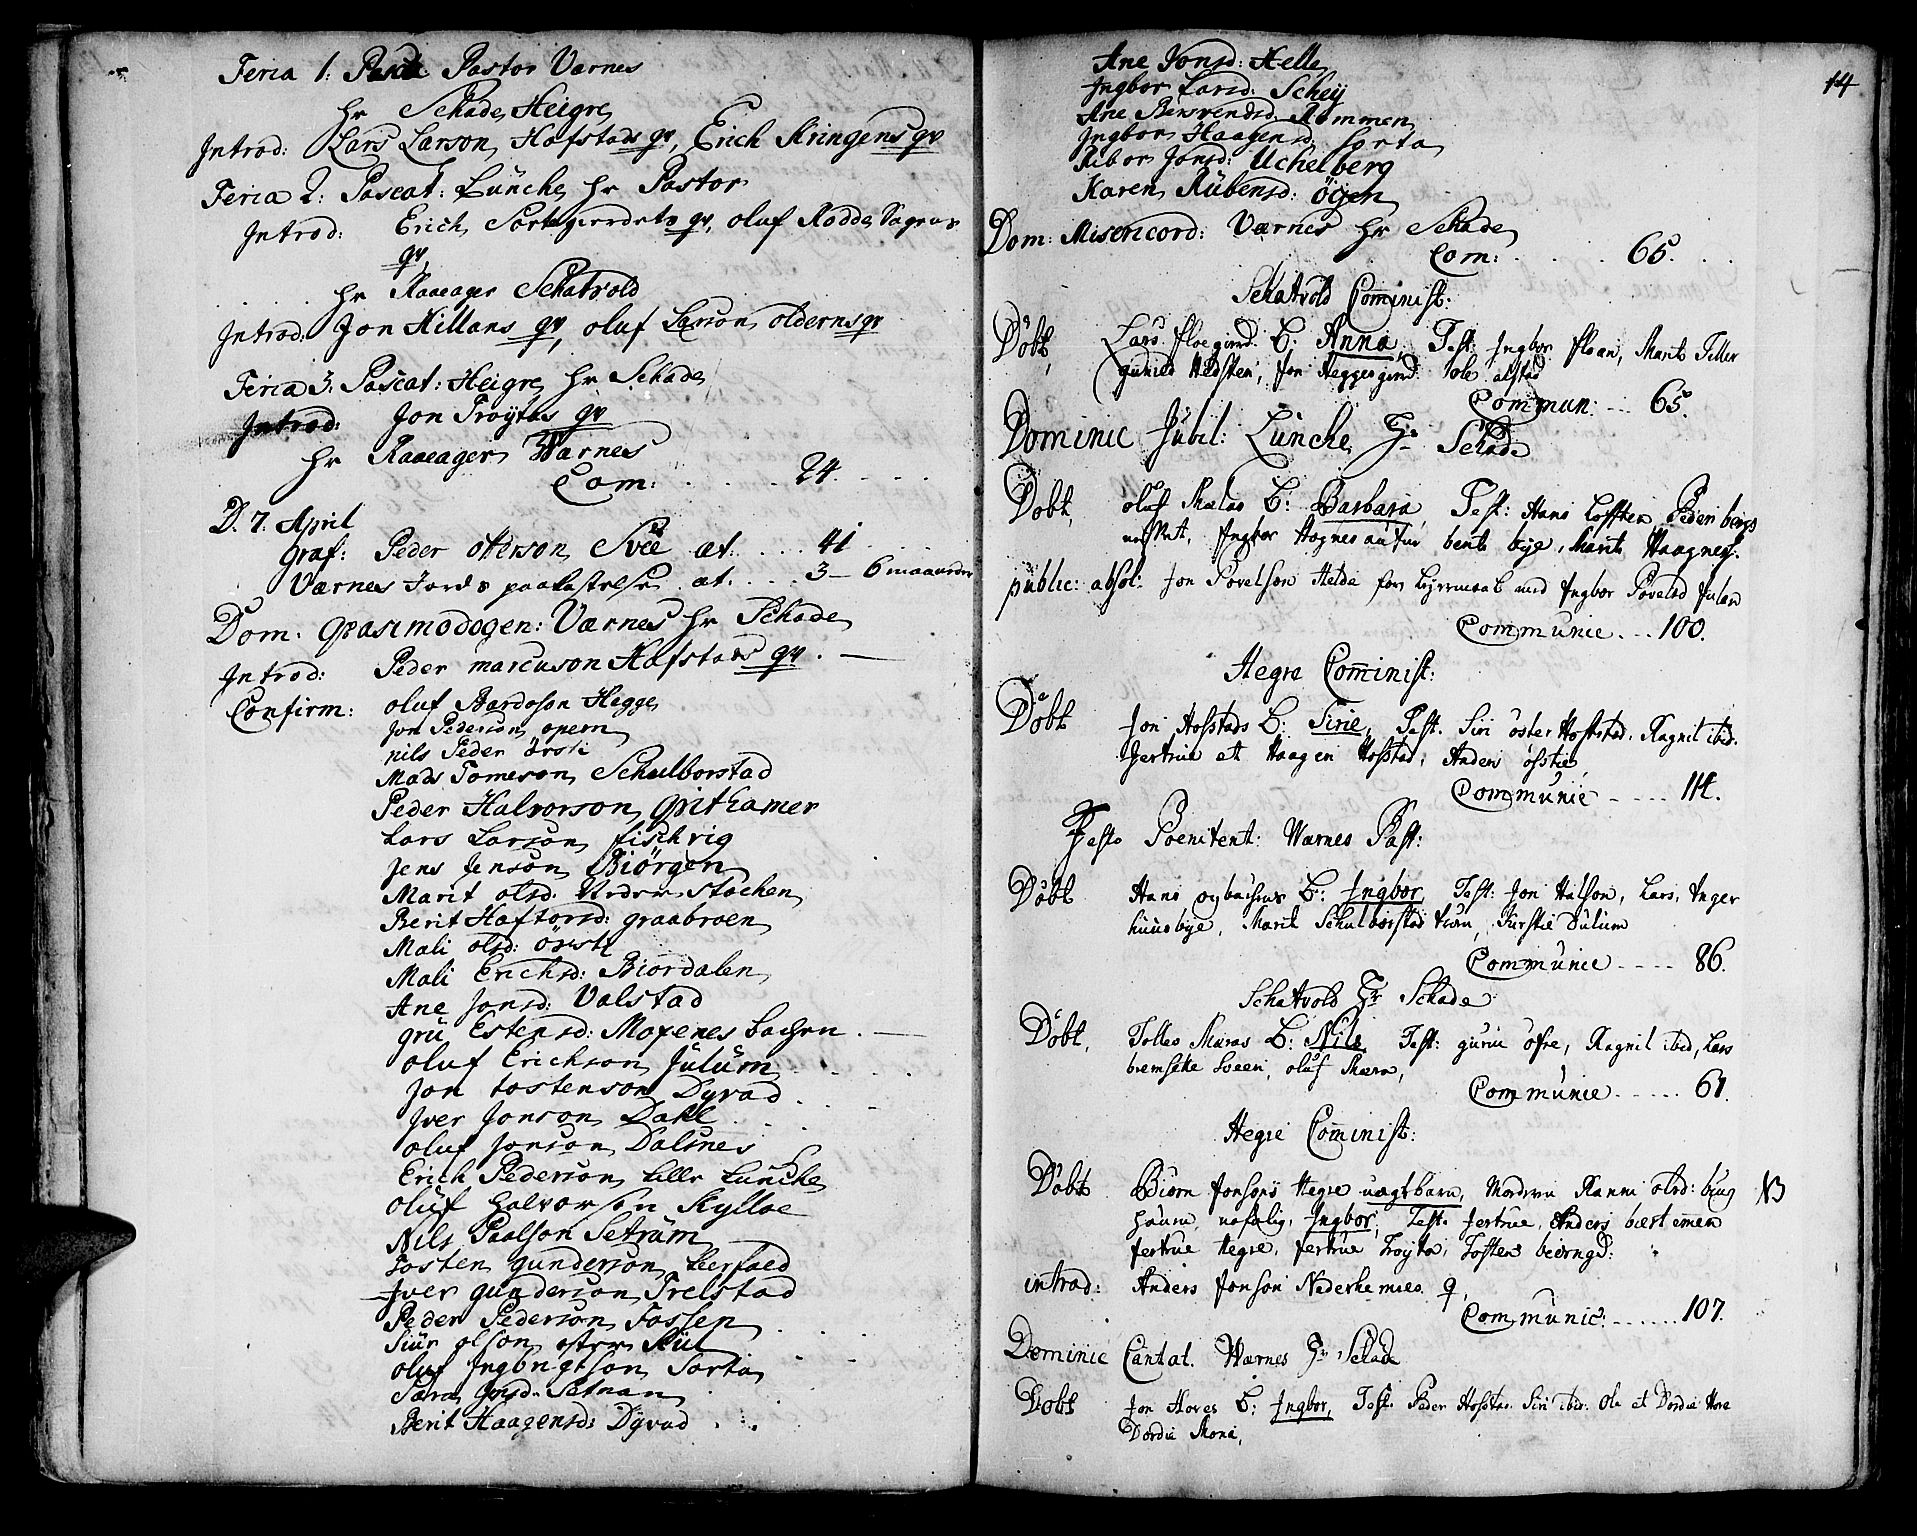 Feria 1: Pascat Pastor Værnes
hr Schade Heigre
Introd: Lars Larson Hofstads qv, Erich Kringens qv
Feria 2: Pascat: Lünche hr Pastor
Introd: Erich Sortegierdets qv, oluf Rodde
qv
hr Raaeager Schatvold
Introd: Jon Hillans qv, oluf Larson olderns qv
Feria 3: Pascat: Heigre hr Schade
Introd: Jon Trøÿtes qv
hr Raaeager Warnes
Com: 24.
D. 7. April
Graf: Peder Oterson Svee æt: 41
Værnes Jords paakastelse æt. 3 – 6 maaneder
Dom: Qvasimodogen: Værnes hr Schade
Introd: Peder marcuson Hofstads qv.
Confirm: oluf Bardoson Hegge
Jon Pederson opem
nils Peder örsti
Mads Tomeson Schulborstad
Peder Halvorson Qvithamer
Lars Larson fischvig
Jens Jenson Biörgen
Marit olsd: Neder Stochen
Berit Haftorsd: graabroen
Mali olsd: örsti
Mali Erichsd: Biordalen
Ane Jonsd: Valstad
gru Estensd: Moxenes bachen
oluf Erichson Julum
Jon tostenson Dyvad
Jver Jonson Dahl
oluf Jonson Dalsnes
Erich Pederson Lille Lunche
oluf halvorson Kylloe
Nils Paalson Setrum
Tosten gunderson Leerfald
Jver gunderson Trelstad
Peder Pederson Fossen
Siür olson öster Kül
oluf Ingbrigtson Sorta
Sara Jonsd: Setnan
Berit Haagensd: Dyvad
14
Ane Jonsd: Helle
Ingbor Larsd: Scheÿ
Ane Bersvendsd Rommen
Ingbor Haagensd: Sorta
Ribor Jonsd: Uchelberg
Karen Rubensd: öÿen
Dom: Misericord: Værnes hr Schade
Com: 65.
Schatvold Cominist:
Döbt, Lars floegierd B: Anna, Test: Ingbor floan, Marit Teller
gunild Hedsten, Jon Heggesgierd ole alstad
Commun: 65.
Dominic Jubil: Lunche Hr Schade
Döbt, oluf Mælas B: Barbara, Test: Hans Lofften Peder bergs
Ingbor Hognesautur bent bye, Marit Haagnes.
public: absol: Jon Povelson Helda for Leyermaal med Ingbor Povelsd Julan
Communic 100.
Hegre Cominist:
Döbt Jon Hofstads B: Sirie, Test. Siri öster Hofstad, Ragnil ibid.
Jertrue et Haagen Hofstad, Anders öfstie,
Communic 114.
Festo Poenitent: Wærnes Past:
Döbt Hans oybachens B: Ingbor Test: Jon Hulson, Lars, Inger
huusbye, Marit Schulborstad Kirstie Dulum
Communic 86.
Schatvold Hr Schade
Döbt, Tolles Muras B: Nils, Test: guru öfre, Ragnil ibid, Lars
Sveen, oluf Mæra,
Communic 61.
Hegre Cominist:
Döbt Biörn Jonsøns Hegre uægtbarn, Moderen Karen olsd: NB
Ingbor, Test. Jertrue, Anders
Jertrue Hegre, Jertrue Trøyte, Tosten
introd: Anders Jonson Nederhemies q.
Communic: 107.
Dominic Cantat. Wærnes Hr Schade
Döbt Jon Hoves B: Ingbor, Test. Peder Hofstad Siri ibid. Ole et Dordie Hove
Dordie Mona,